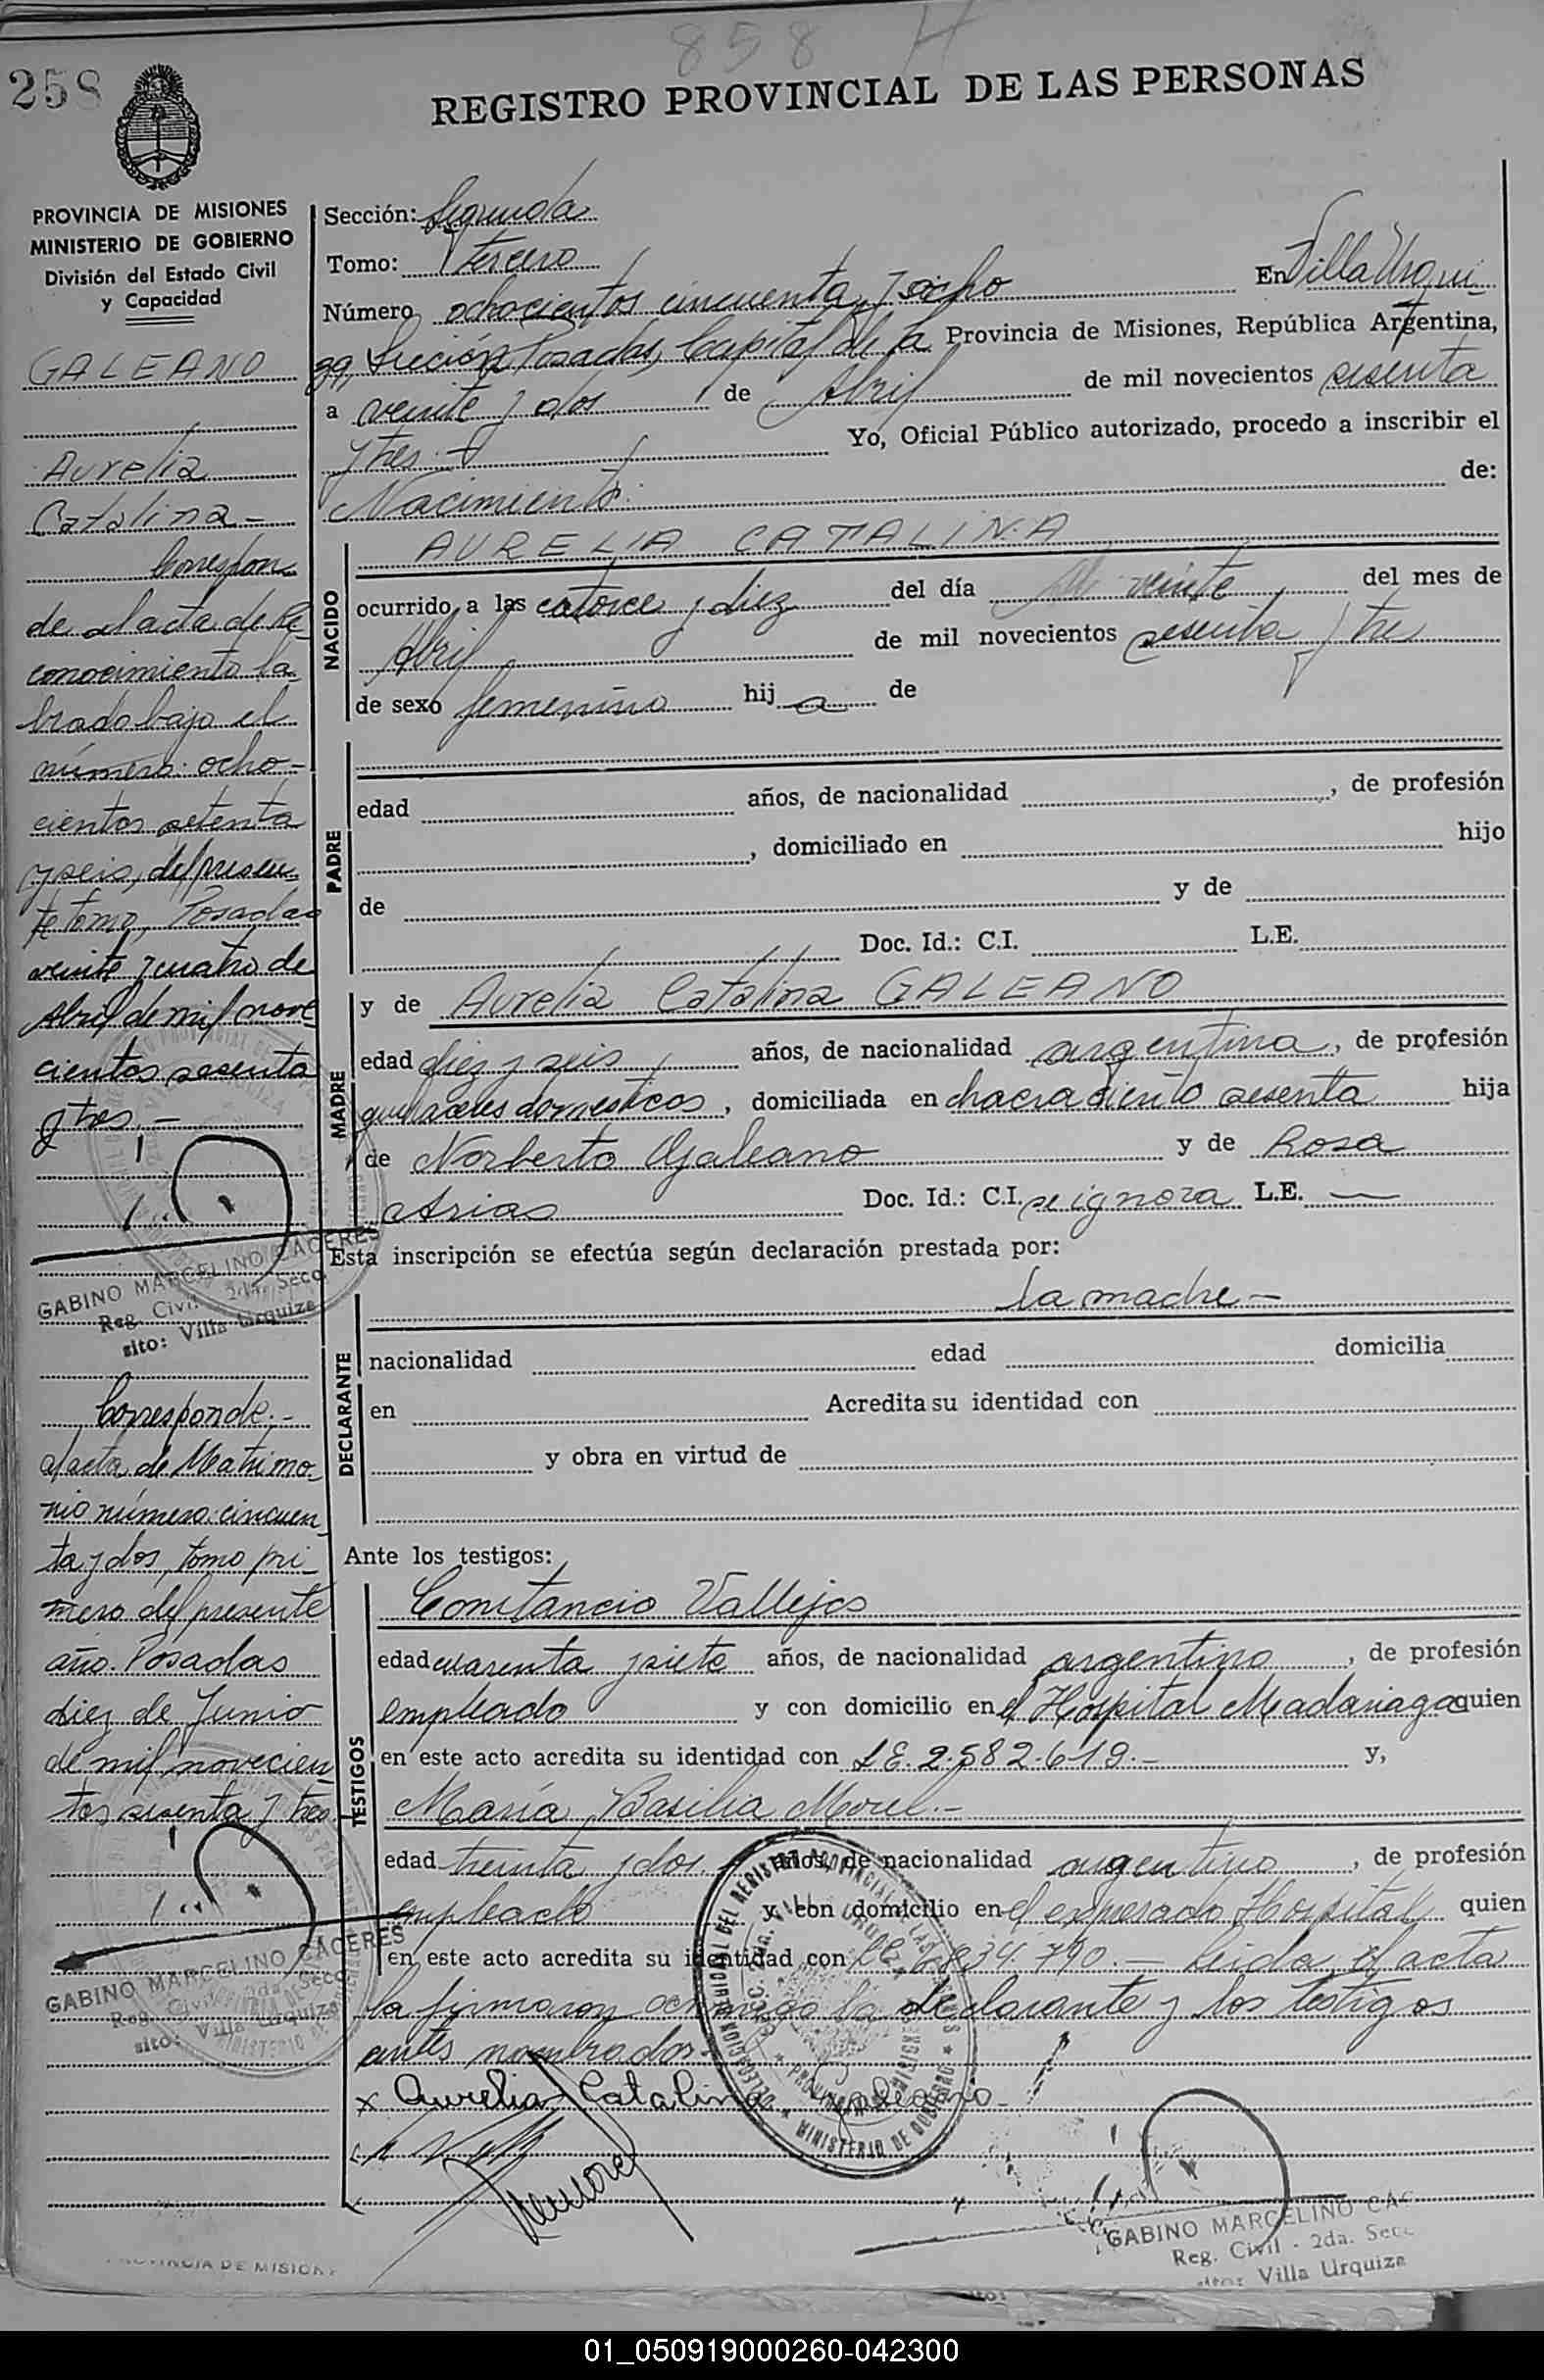 858 H
258
REGISTRO PROVINCIAL DE LAS PERSONAS
PROVINCIA DE MISIONES
MINISTERIO DE GOBIERNO
División del Estado Civil
y Capacidad
GALEANO
Aurelia
Catalina -
Correspon
de al acta de Re
conocimiento la
brado bajo el
número: ocho-
cientos setenta
y seis, del presen
te tomo, Posadas
veinte y cuatro de
Abril de mil nove
cientos sesenta
y tres.-
GABINO MARCELINO CACERES
Reg. Civil 2da. Secc.
sito: Villa Urquiza
Corresponde.-
al acta de Matrimo
nio número: cincuen
ta y dos, tomo pri-
mero del presente
año. Posadas
diez de Junio
de mil novecien
tos sesenta y tres.
GABINO MARCELINO CACERES
Reg. Civil 2da. Secc
sito: Villa Urquiza
Sección: Segunda
Tomo: tercero
Número ochocientos cincuenta y ocho En Villa Urqui-
za, Sección Posadas, Capital de la Provincia de Misiones, República Argentina,
a veinte y dos de Abril de mil novecientos sesenta
y tres.- Yo, Oficial Público autorizado, procedo a inscribir el
Nacimiento de:
NACIDO
AURELIA CATALINA
ocurrido a las catorce y diez del día veinte del mes de
Abril de mil novecientos sesenta y tres
de sexo femenino hij a de
PADRE
edad años, de nacionalidad , de profesión
, domiciliado en hijo
de y de
Doc. Id.: C.I. L.E.
MADRE
y de Aurelia Catalina GALEANO
edad diez y seis años, de nacionalidad argentina, de profesión
quehaceres domesticos, domiciliada en chacra ciento sesenta hija
de Norberto Galeano y de Rosa
Arias Doc. Id.: C.I. se ignora L.E. —
Esta inscripción se efectúa según declaración prestada por:
DECLARANTE
la madre -
nacionalidad edad domicilia
en Acredita su identidad con
y obra en virtud de
Ante los testigos:
TESTIGOS
Constancio Vallejos
edad cuarenta y siete años, de nacionalidad argentino, de profesión
empleado y con domicilio en el Hospital Madariaga quien
en este acto acredita su identidad con L.E. 2.582.619.- y,
María Basilia Morel.-
edad treinta y dos años, de nacionalidad argentina, de profesión
empleado y con domicilio en el expresado Hospital quien
en este acto acredita su identidad con 834.790.- Leida el acta
la firmaron conmigo la declarante y los testigos
antes nombrados.-
x Aurelia Catalina Galeano
DELEGACION DEL REGISTRO PROVINCIAL DE LAS PERSONAS
MINISTERIO DE GOBIERNO
GABINO MARCELINO CAC
Reg. Civil - 2da. Secc
sito: Villa Urquiza
PROVINCIA DE MISIONES
01_050919000260-042300